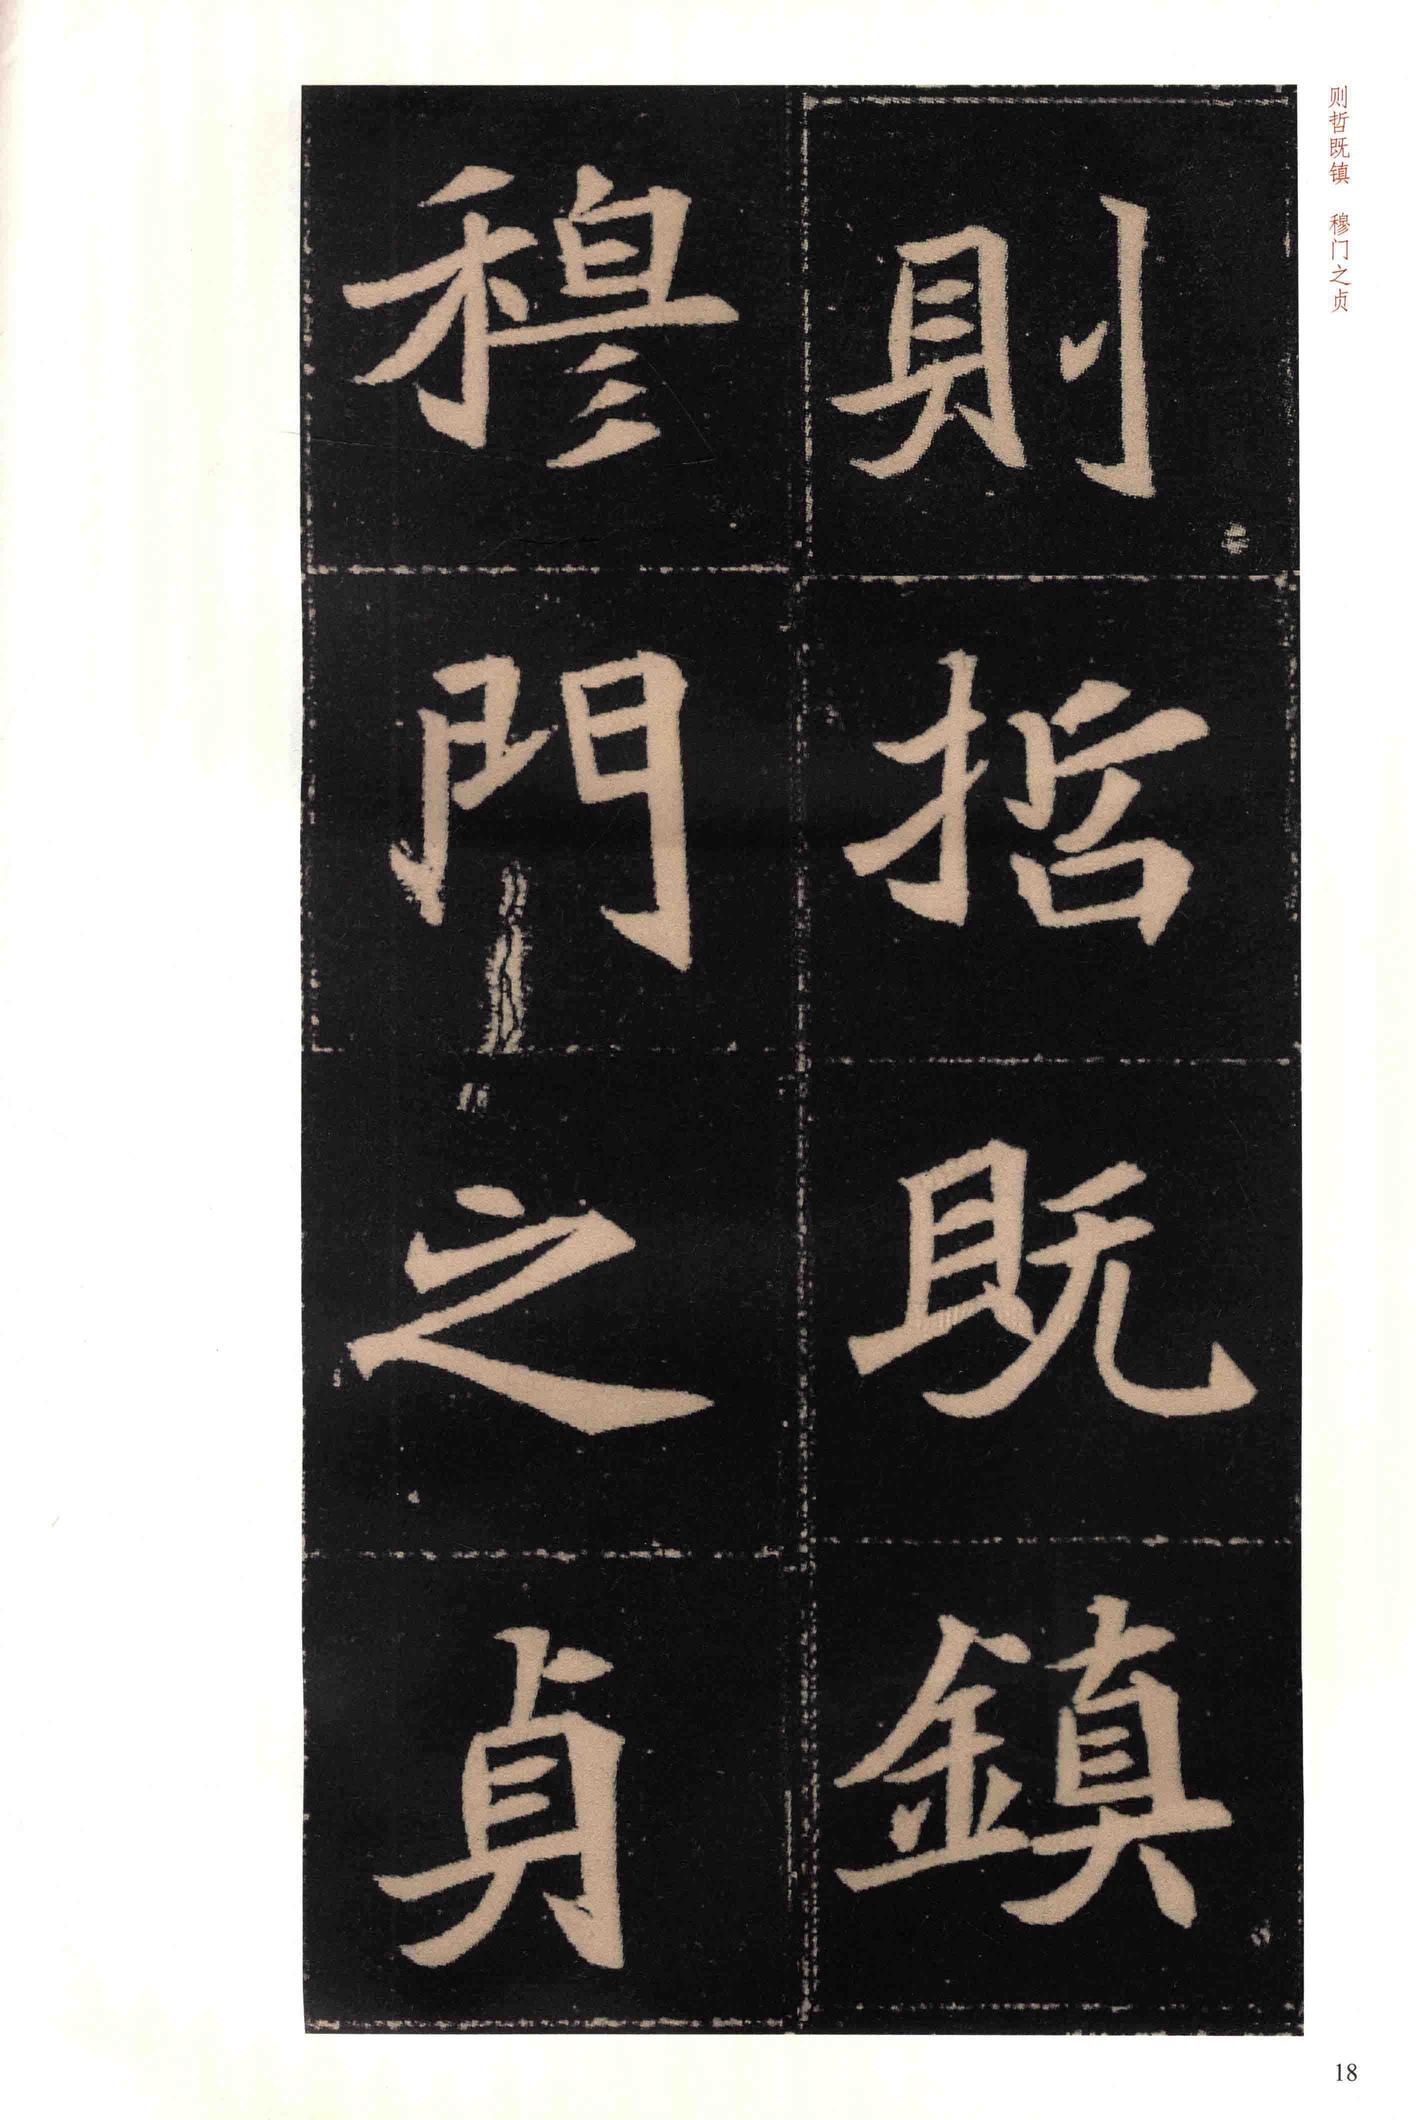 则哲既镇 穆门之贞
則哲既鎮
穆門之貞
18